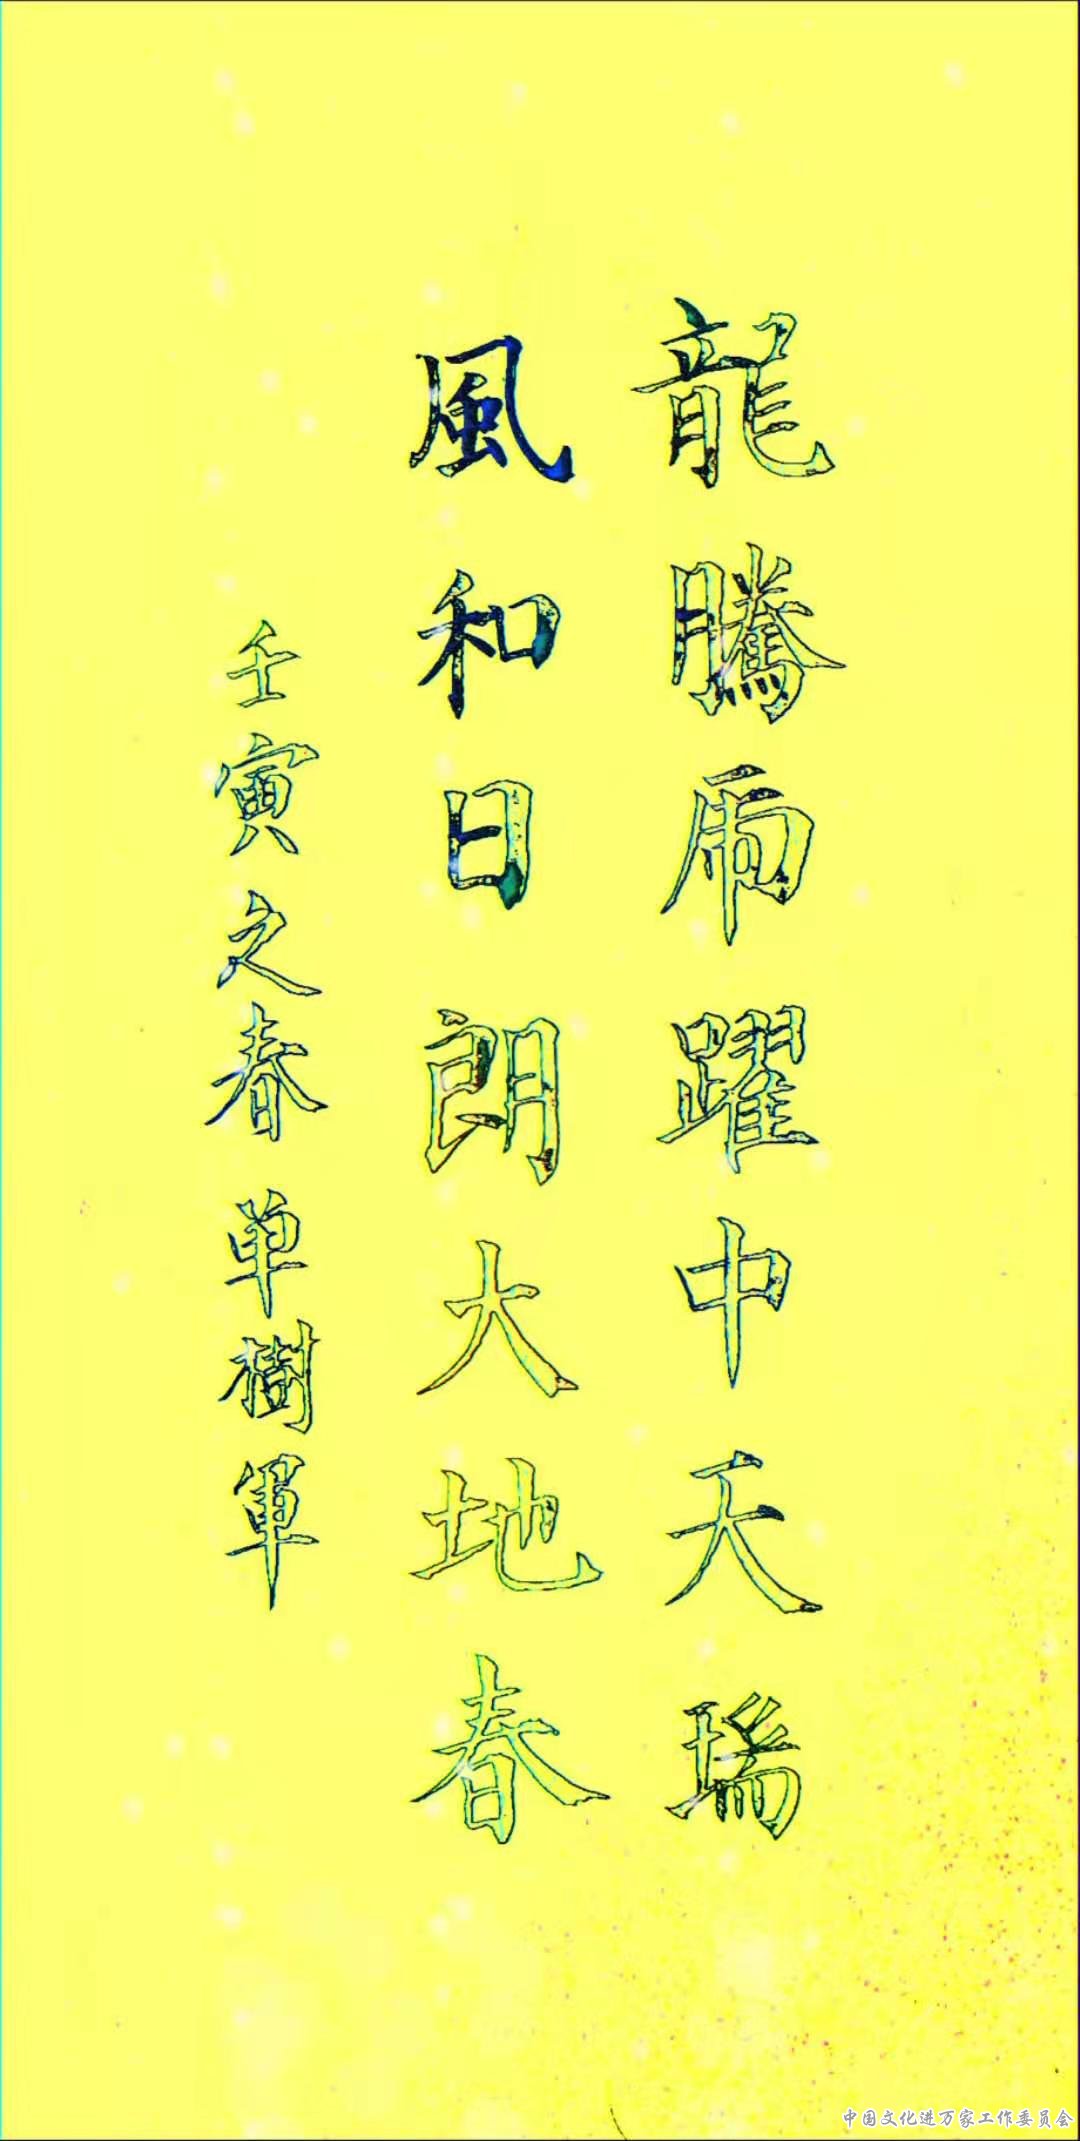 龍騰虎躍中天瑞
風和日朗大地春
壬寅之春 单樹軍
中国文化进万家工作委员会